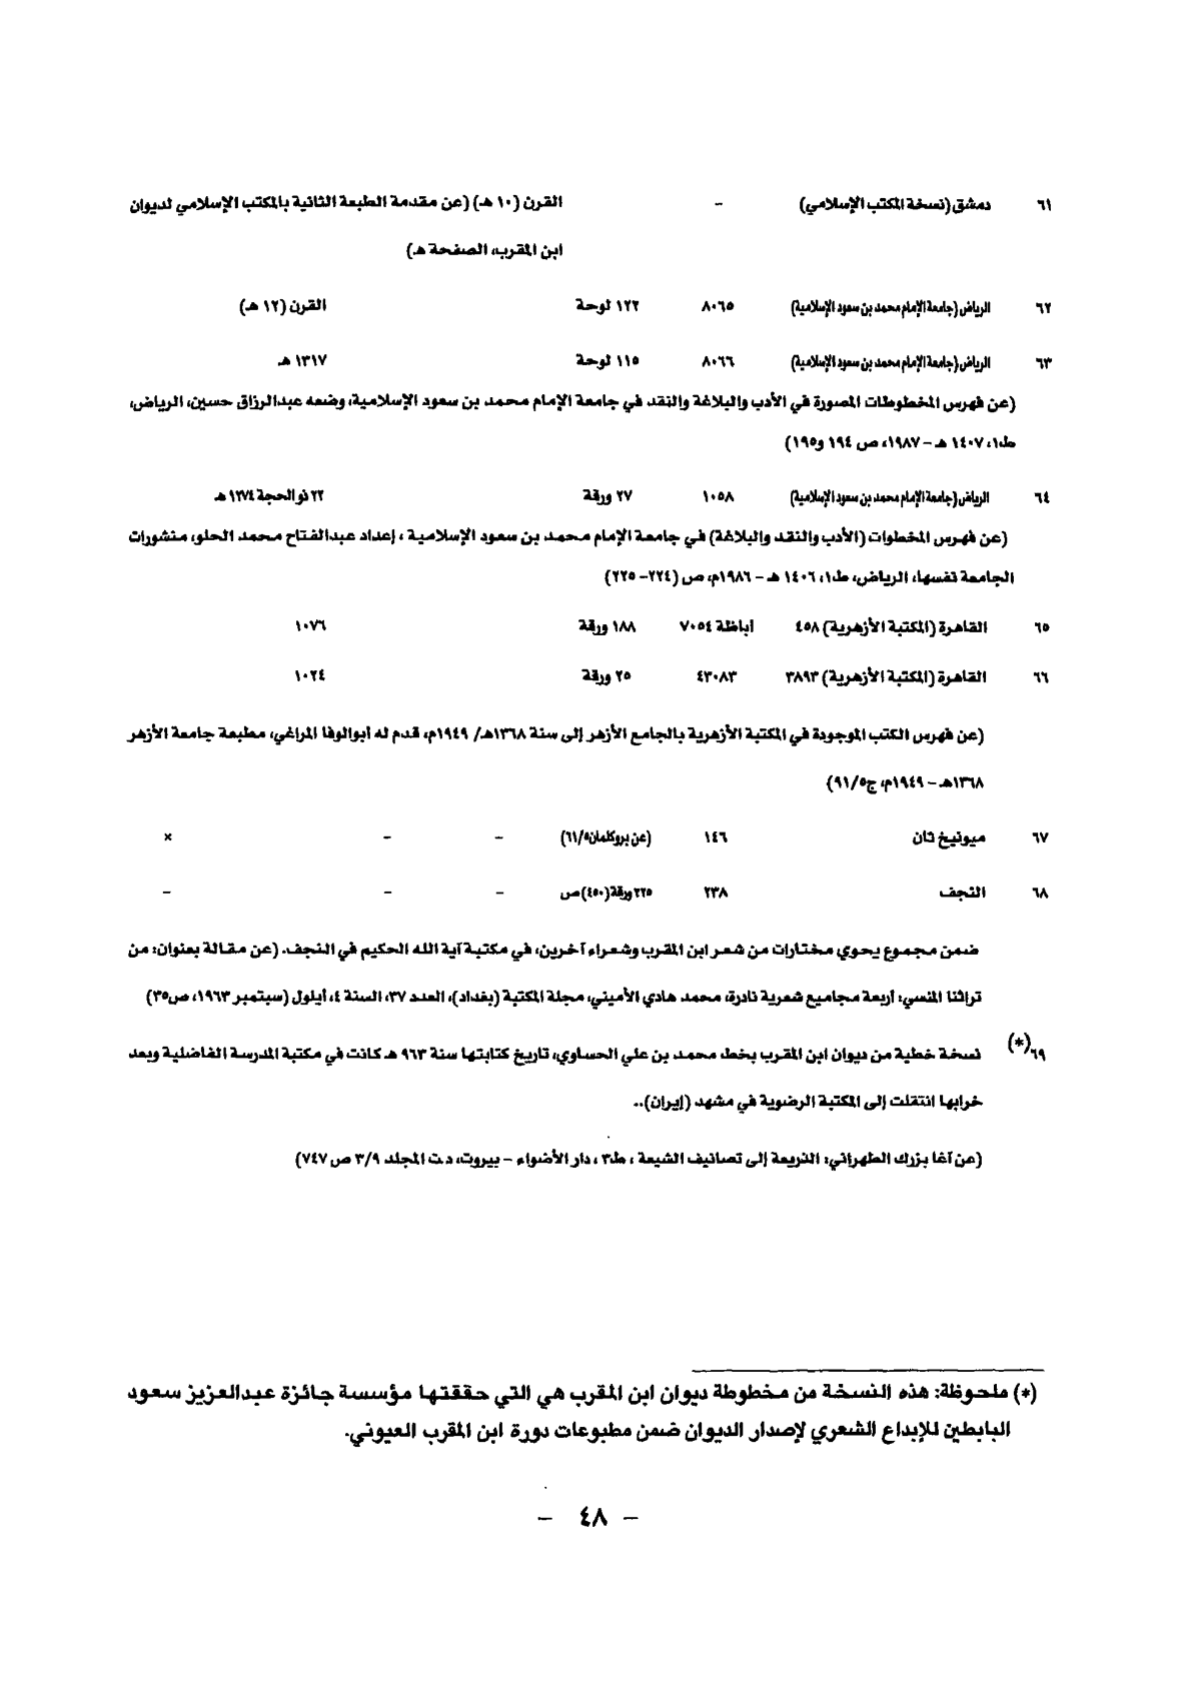 ٦١ دمشق (نسخة المكتب الإسلامي) - القرن (١٠ هـ) (عن مقدمة الطبعة الثانية بالمكتب الإسلامي لديوان
ابن المقرب، الصفحة هـ)
٦٢ الرياض (جامعة الإمام محمد بن سعود الإسلامية) ٨٠٦٥ ١٢٢ لوحة القرن (١٢ هـ)
٦٣ الرياض (جامعة الإمام محمد بن سعود الإسلامية) ٨٠٦٦ ١١٥ لوحة ١٣١٧ هـ
(عن فهرس المخطوطات المصورة في الأدب والبلاغة والنقد في جامعة الإمام محمد بن سعود الإسلامية، وضعه عبدالرزاق حسين، الرياض،
ط١، ١٤٠٧ هـ – ١٩٨٧، ص ١٩٤ و١٩٥)
٦٤ الرياض (جامعة الإمام محمد بن سعود الإسلامية) ١٠٥٨ ٢٧ ورقة ٢٢ ذو الحجة ١٢٧٤ هـ
(عن فهرس المخطوات (الأدب والنقد والبلاغة) في جامعة الإمام محمد بن سعود الإسلامية ، إعداد عبدالفتاح محمد الحلو، منشورات
الجامعة نفسها، الرياض، ط١، ١٤٠٦ هـ – ١٩٨٦م، ص (٢٢٤– ٢٢٥)
٦٥ القاهرة (المكتبة الأزهرية) ٤٥٨ أباظة ٧٠٥٤ ١٨٨ ورقة ١٠٧٦
٦٦ القاهرة (المكتبة الأزهرية) ٣٨٩٣ ٤٣٠٨٣ ٢٥ ورقة ١٠٢٤
(عن فهرس الكتب الموجودة في المكتبة الأزهرية بالجامع الأزهر إلى سنة ١٣٦٨هـ/ ١٩٤٩م، قدم له أبوالوفا المراغي، مطبعة جامعة الأزهر
١٣٦٨هـ – ١٩٤٩م، ج٩١/٥)
٦٧ ميونيخ ثان ١٤٦ (عن بروكلمان٦١/٥) – – ×
٦٨ النجف ٢٣٨ ٢٢٥ ورقة (٤٥٠) ص – – –
ضمن مجموع يحوي مختارات من شعر ابن المقرب وشعراء آخرين، في مكتبة آية الله الحكيم في النجف. (عن مقالة بعنوان: من
تراثنا المنسي: أربعة مجاميع شعرية نادرة، محمد هادي الأميني، مجلة المكتبة (بغداد)، العدد ٣٧، السنة ٤، أيلول (سبتمبر ١٩٦٣، ص٣٥)
٦٩(*) نسخة خطية من ديوان ابن المقرب بخط محمد بن علي الحساوي، تاريخ كتابتها سنة ٩٦٣ هـ كانت في مكتبة المدرسة الفاضلية وبعد
خرابها انتقلت إلى المكتبة الرضوية في مشهد (إيران)..
(عن آغا بزرك الطهراني: الذريعة إلى تصانيف الشيعة ، ط٣ ، دار الأضواء – بيروت، د.ت المجلد ٣/٩ ص ٧٤٧)
(*) ملحوظة: هذه النسخة من مخطوطة ديوان ابن المقرب هي التي حققتها مؤسسة جائزة عبدالعزيز سعود
البابطين للإبداع الشعري لإصدار الديوان ضمن مطبوعات دورة ابن المقرب العيوني.
– ٤٨ –